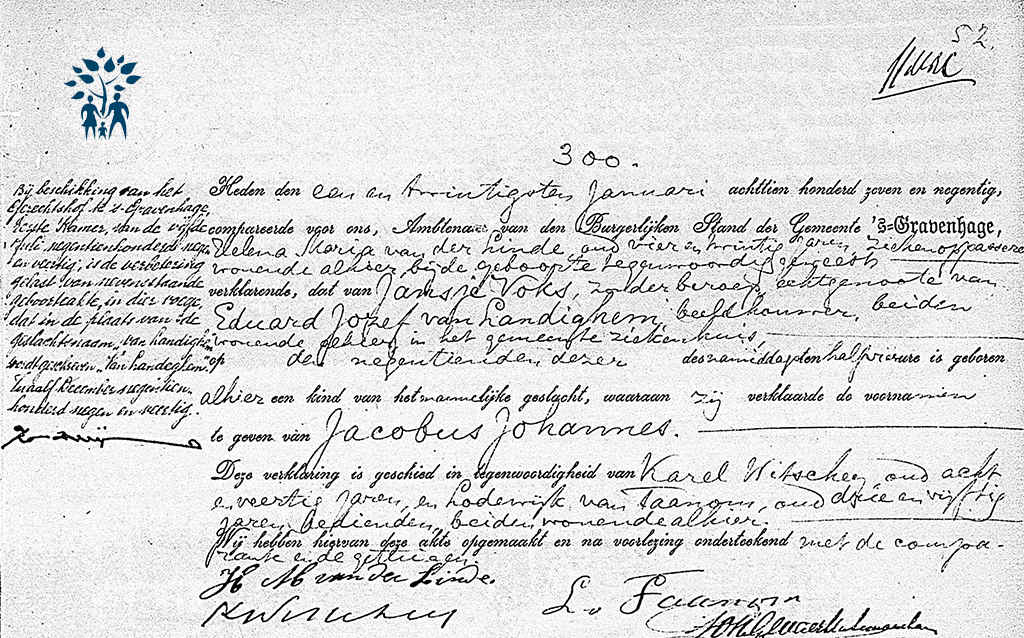 52.
300.
Bij beschikking van het
Gerechtshof te 's-Gravenhage,
Kamer, van de vijfde
negentienhonderd negen
en veertig, is de verbetering
gelast van nevenstaande
geboorteakte, in dier voege,
dat in de plaats van de
geslachtsnaam "van Landighem"
"Van Landeghem".
Twaalf December negentien-
honderd negen en veertig.
Heden den een en twintigsten Januari achttien honderd zeven en negentig,
compareerde voor ons, Ambtenaar van den Burgerlijken Stand der Gemeente 's-Gravenhage,
Helena Maria van der Linde, oud vier en twintig jaren, ziekenoppasseres
wonende alhier, bij de geboorte tegenwoordig geweest
verklarende, dat van Jansje Voks, zonder beroep, echtgenoote van
Eduard Jozef van Landighem, beeldhouwer, beiden
wonende alhier, in het gemeente ziekenhuis,
op den negentienden dezer des namiddags ten half vier ure is geboren
alhier een kind van het mannelijke geslacht, waaraan zij verklaarde de voornamen
te geven van Jacobus Johannes.
Deze verklaring is geschied in tegenwoordigheid van Karel Witscheij, oud acht
en veertig jaren, en Lodewijk van Faanom, oud drie en vijftig
jaren, bedienden, beiden wonende alhier.
Wij hebben hiervan deze akte opgemaakt en na voorlezing onderteekend met de compa-
rante en de getuigen
H M van der Linde.
L v Faanom